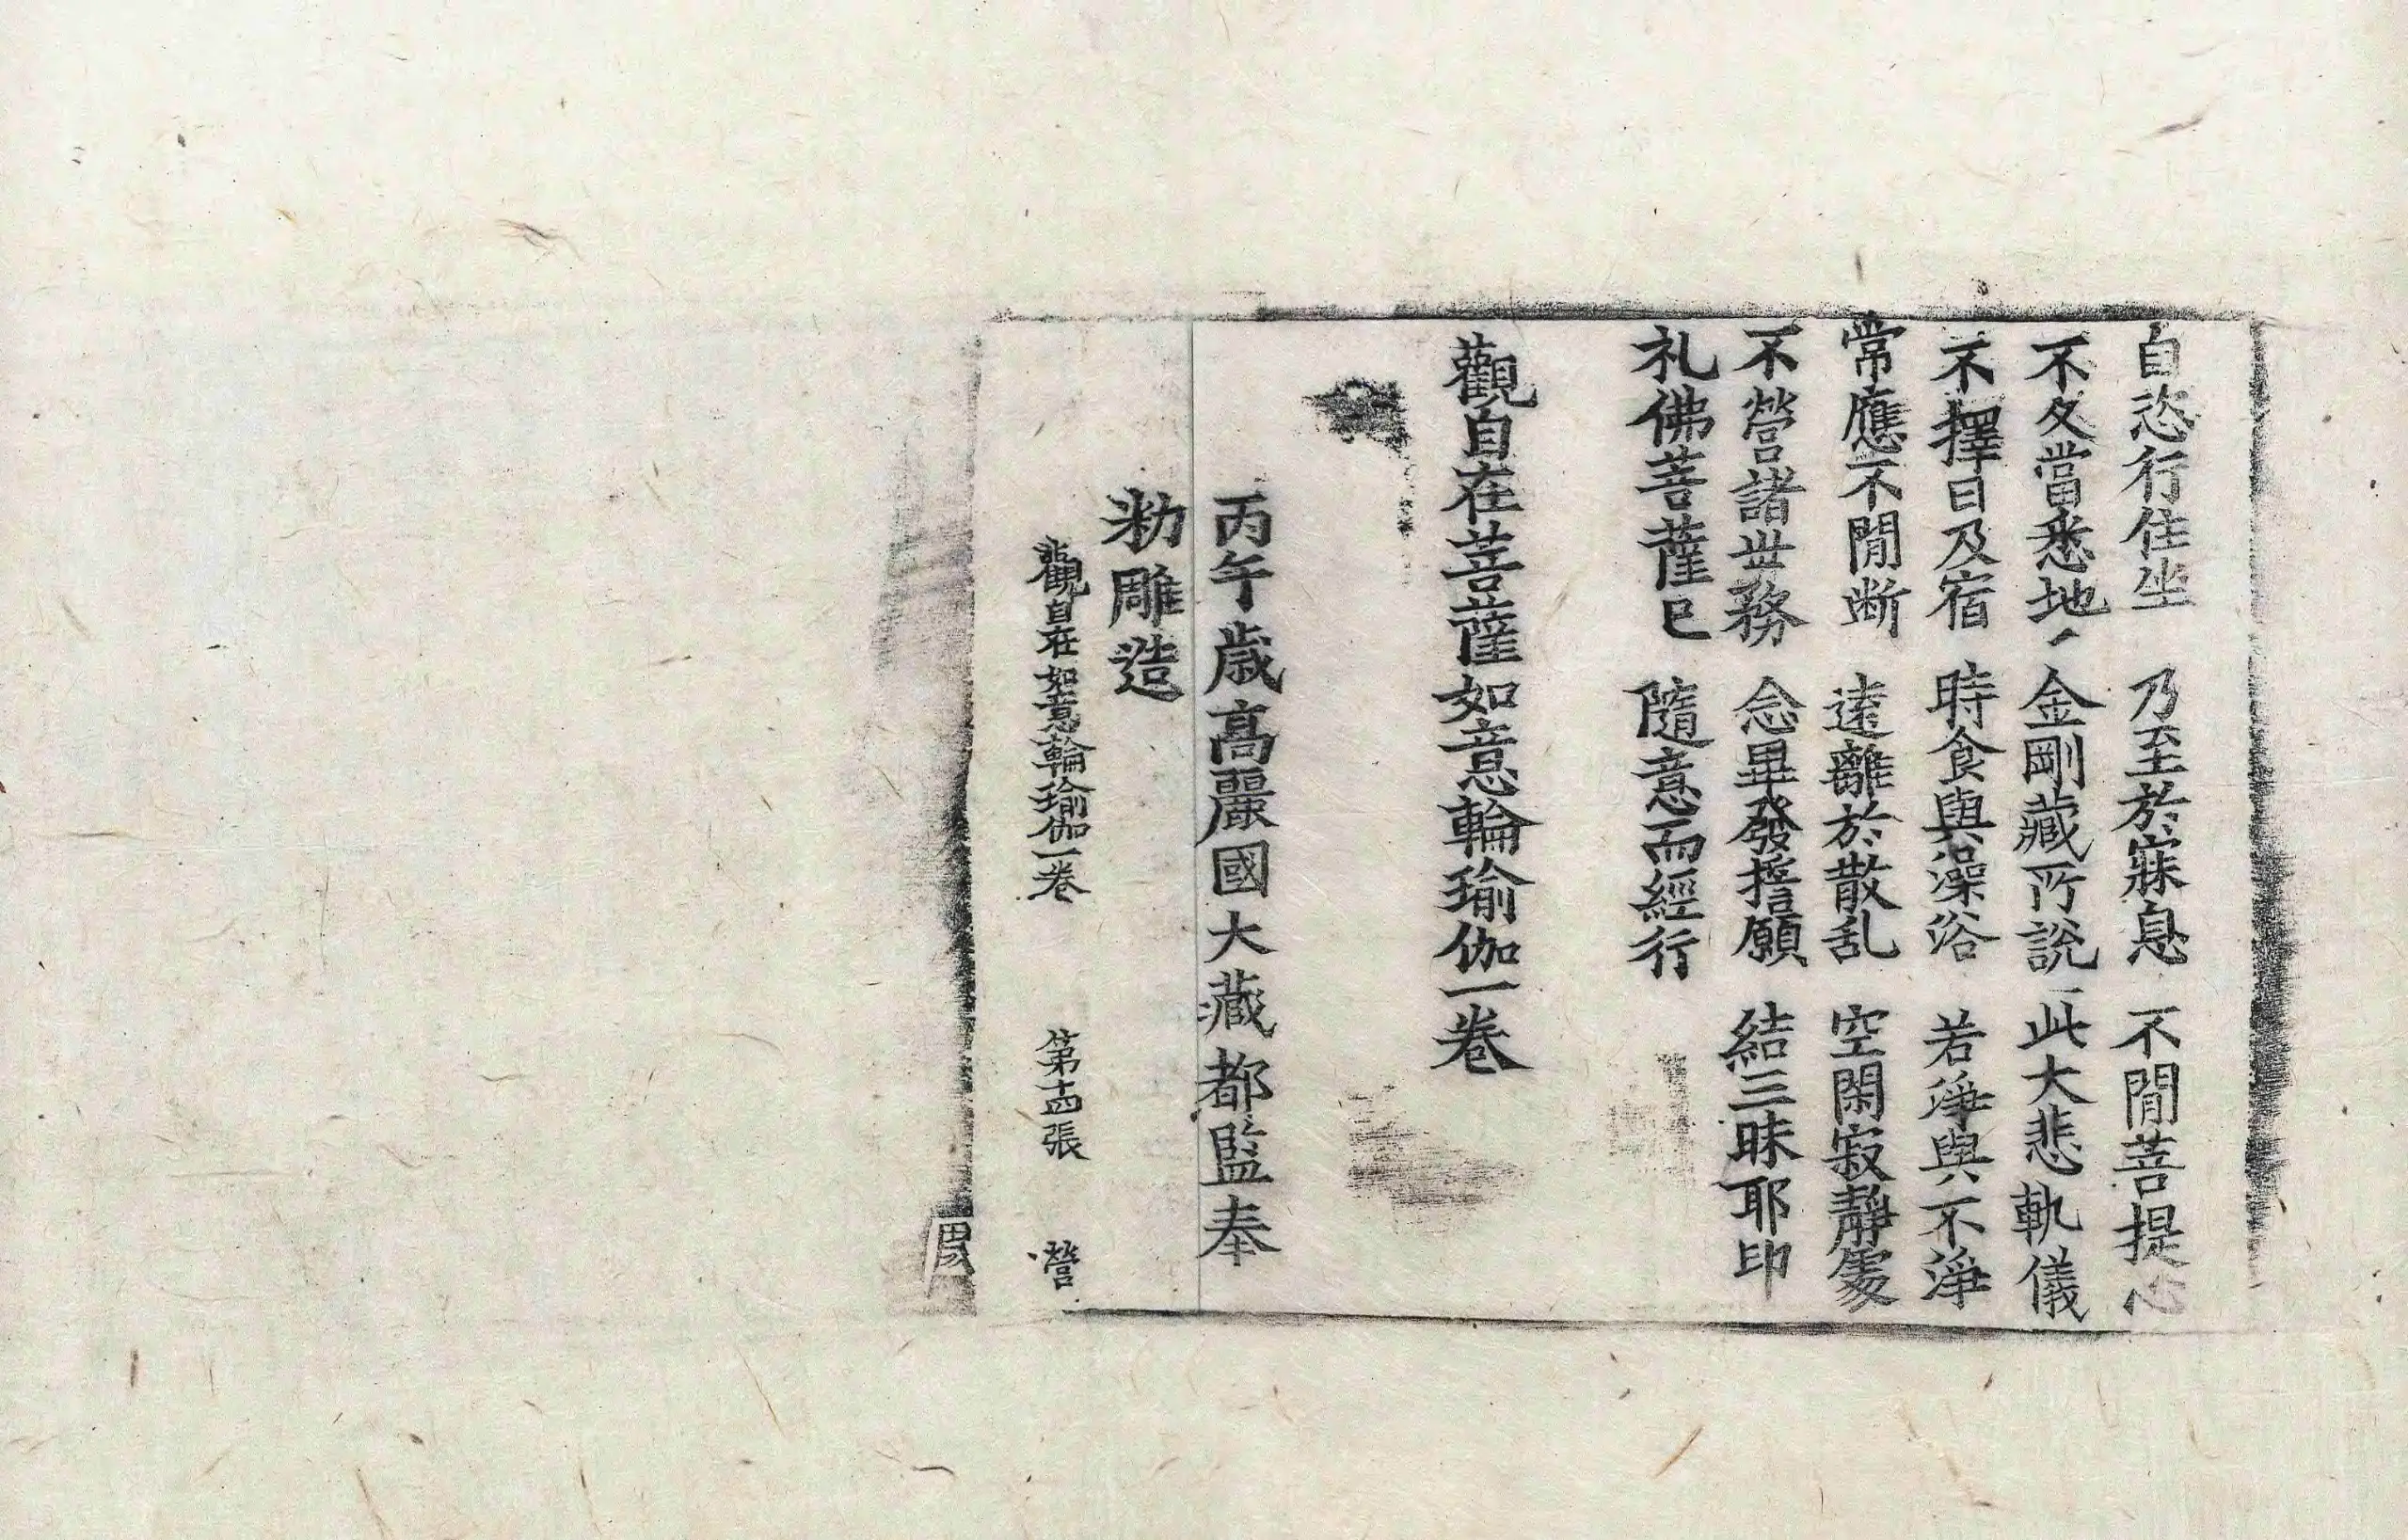 自恣行住坐　乃至於寐息　不閒菩提心
不久當悉地　金剛藏所說　此大悲軌儀
不擇日及宿　時食與澡浴　若淨與不淨
常應不閒断　遠離於散乱　空閑寂靜處
不營諸世務　念畢發擔願　結三昧耶印
礼佛菩薩已　隨意而經行
觀自在菩薩如意輪瑜伽一卷
丙午歳高麗國大藏都監奉
勑雕造
觀自在如意輪瑜伽一卷　第十四張　營